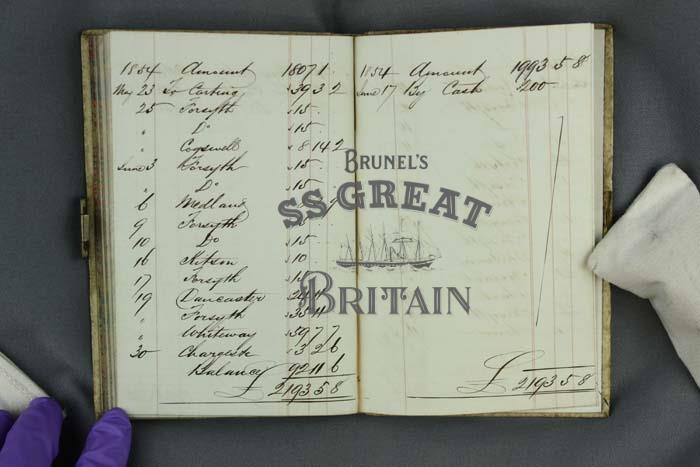 1854 Amount 1807 1
May 23 To Carting 39 3 2
25 Forsyth 15
" Do 15
" Cogswell 8 14 2
June 3 Forsyth 15
" Do 15
6 Medland
9 Forsyth 5
10 Do 15
16 10
17 Forsyth 15
19 Dancaster
" Forsyth 35 11
" Whiteway 59 7 7
30 3 2 6
Balance 92 11 6
£ 2193 5 8
1854 Amount 1993 5 8
June 17 By Cash 200
£ 2193 5 8
BRUNEL'S
SS GREAT
BRITAIN